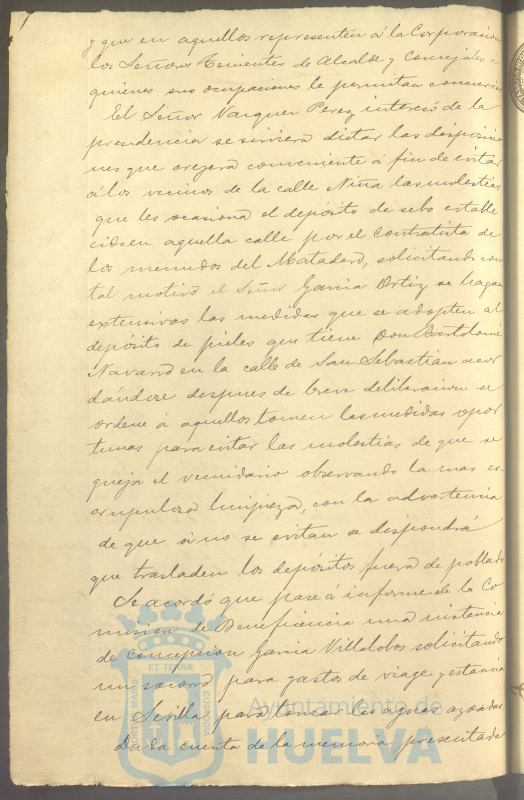 y que en aquellos representen á la Corporacion
los Señores Tenientes de Alcalde y Concejales á
quienes sus ocupaciones le permitan concurrir
El Señor Vazquez Perez interesó de la
presidencia se sirviera dictar las disposicio
nes que creyera conveniente á fin de evitar
á los vecinos de la calle Niña las molestias
que les ocasiona el depósito de sebo estable
cido en aquella calle por el Contratista de
los menudos del Matadero, solicitando con
tal motivo el Señor Garcia Ortiz se hagan
extensivas las medidas que se adopten al
depósito de pieles que tiene Don Bartolomé
Navarro en la calle de San Sebastian acor
dándose despues de breve deliberacion se
ordene á aquellos tomen las medidas opor
tunas para evitar las molestias de que se
queja el vecindario observando la mas es
crupulosa limpieza, con la advertencia
de que si no se evitan se dispondrá
que trasladen los depósitos fuera de poblado
Se acordó que pase á informe de la Co
mision de Beneficencia una instancia
de Concepcion Garcia Villalobos solicitando
un socorro para gastos de viage y estancia
en Sevilla para tomar las aguas azoadas
Dada cuenta de la memoria presentada
ET TERRÆ
PORTUS MARIS
CUSTODIA
Ayuntamiento de
HUELVA